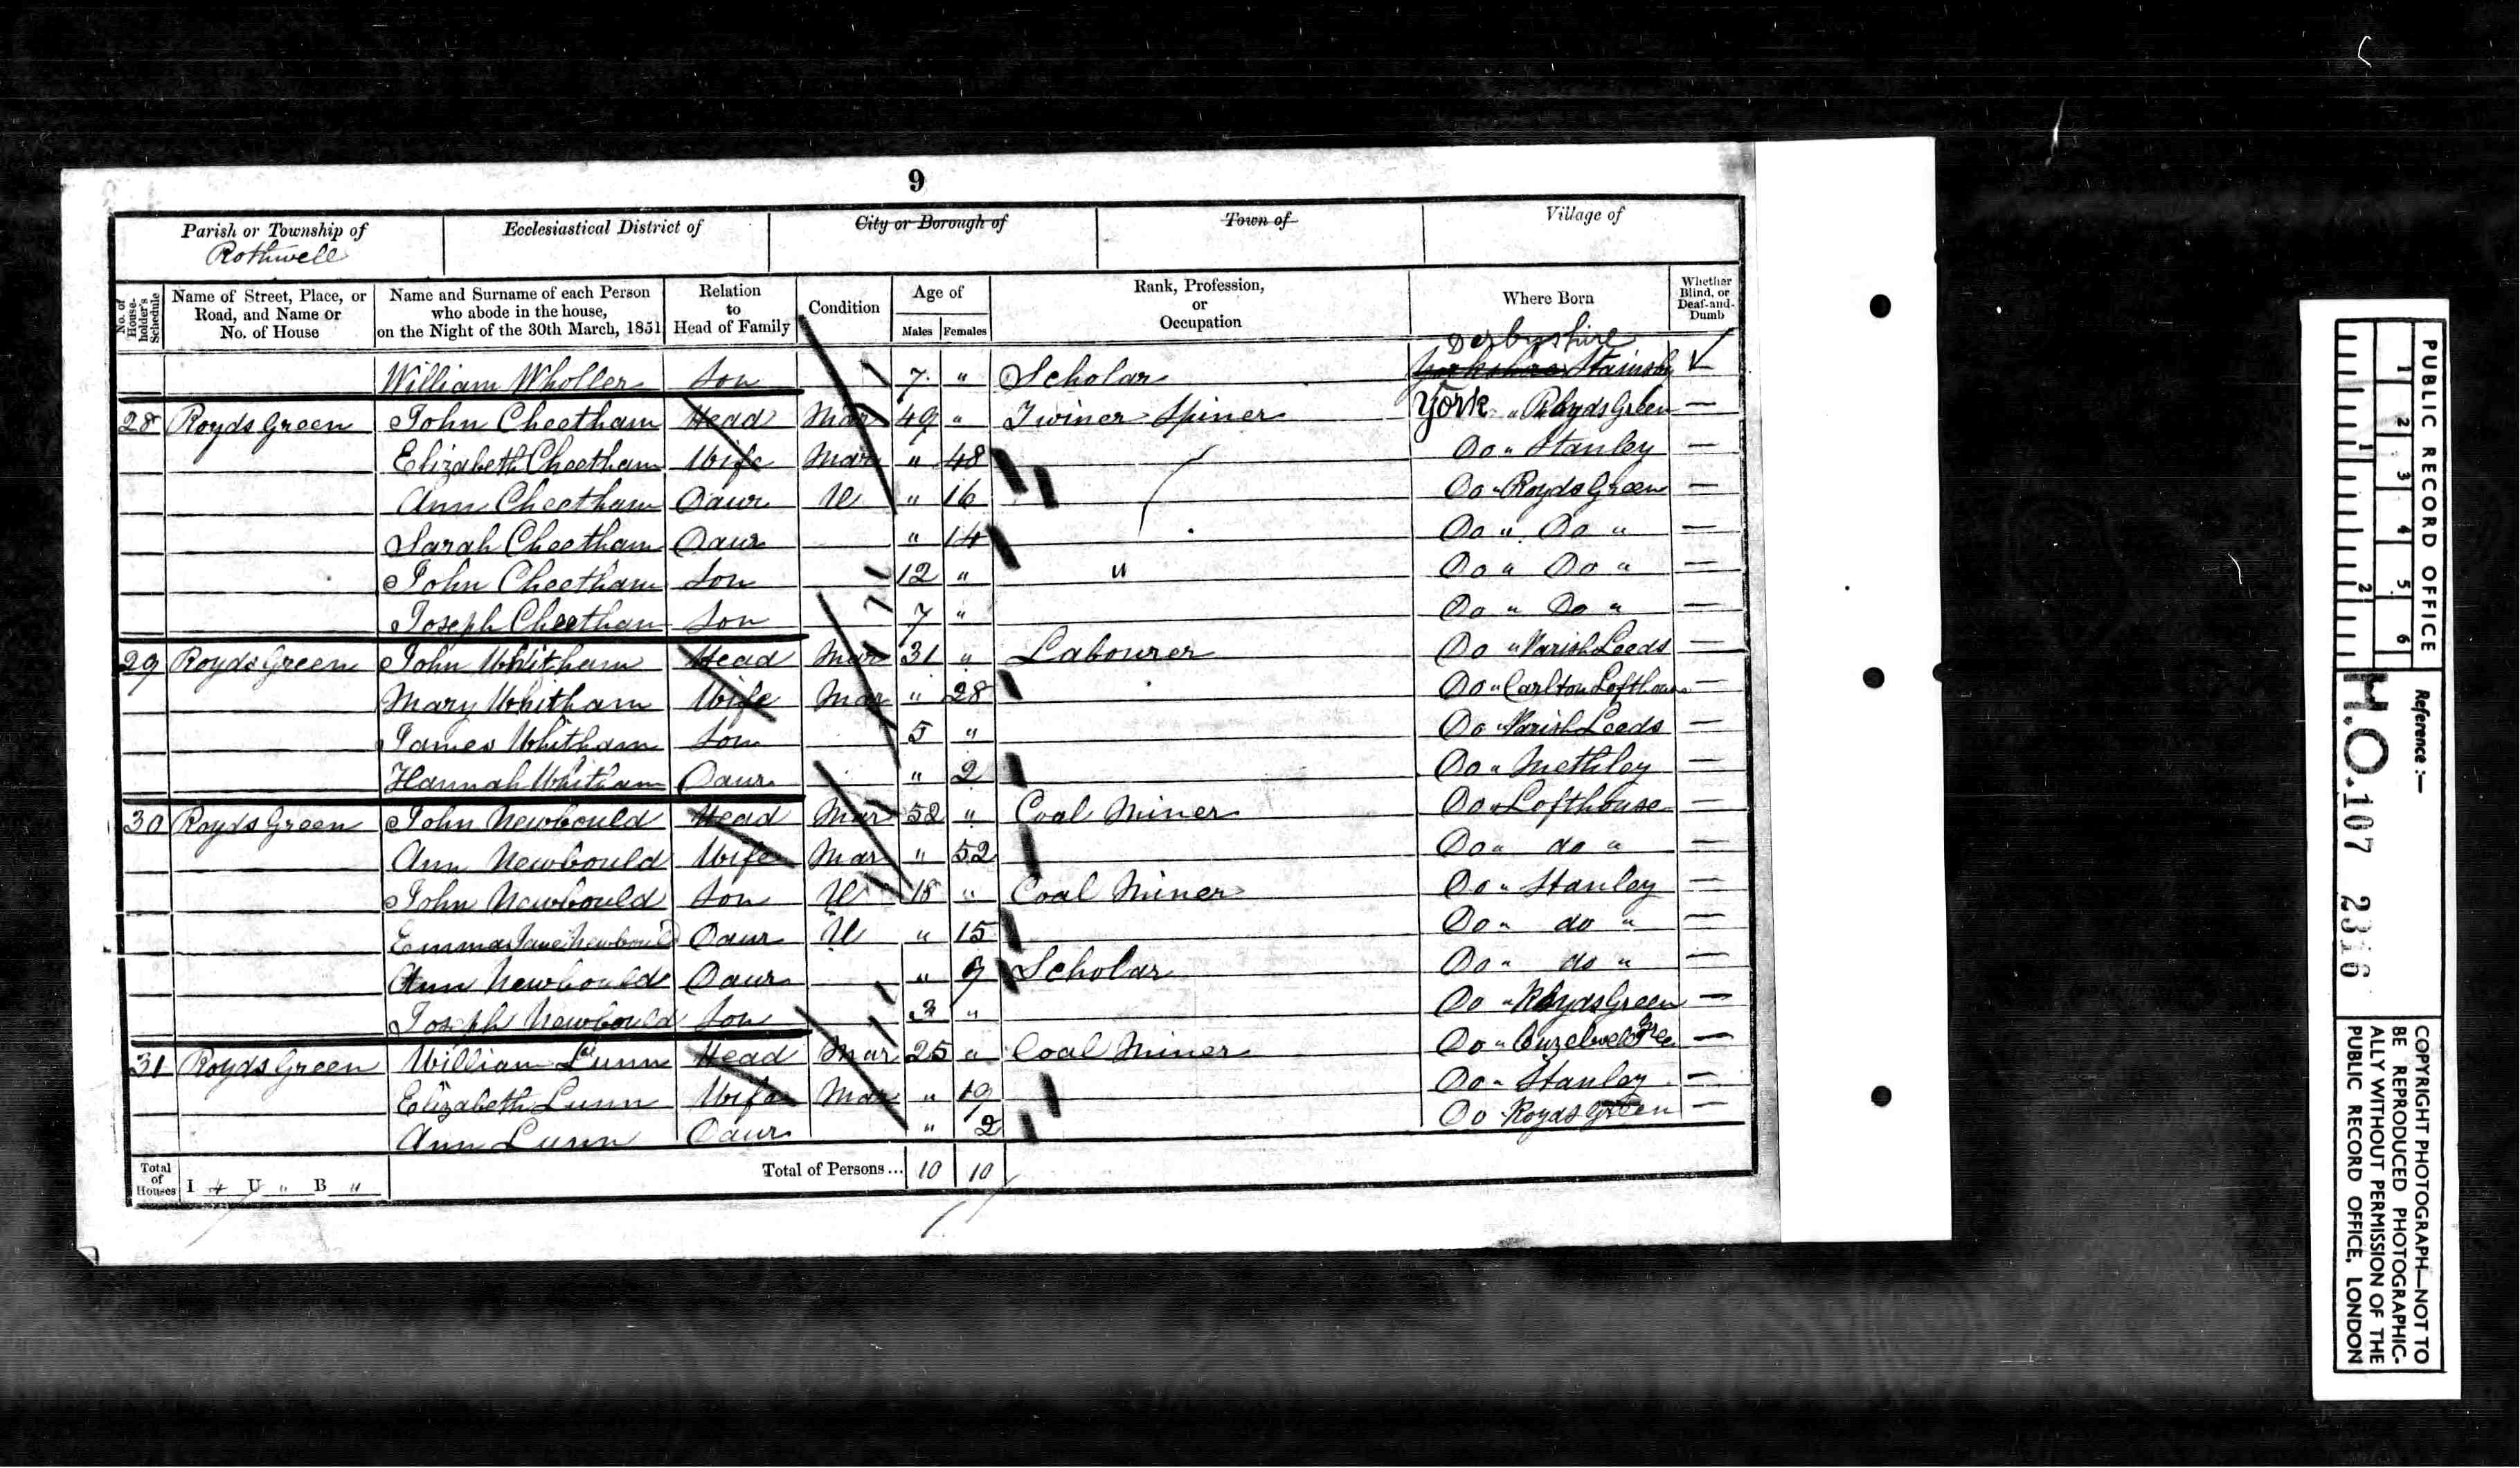 9
Parish or Township of Ecclesiastical District of City or Borough of Town of Village of
Rothwell
No. of House-holder's Schedule Name of Street, Place, or Road, and Name or No. of House Name and Surname of each Person who abode in the house, on the Night of the 30th March, 1851 Relation to Head of Family Condition Age of Males Females Rank, Profession, or Occupation Where Born Whether Blind, or Deaf-and-Dumb
Derbyshire
William Wholler Son 7 " Scholar Yorkshire Stainsby
28 Royds Green John Cheetham Head Mar 49 " Twiner Spiner York " Royds Green —
Elizabeth Cheetham Wife Mar " 48 Do " Stanley —
Ann Cheetham Daur U " 16 Do " Royds Green —
Sarah Cheetham Daur " 14 Do " Do " —
John Cheetham Son 12 " " Do " Do " —
Joseph Cheetham Son 7 " Do " Do " —
29 Royds Green John Whitham Head Mar 31 " Labourer Do " Parish Leeds —
Mary Whitham Wife Mar " 28 Do " Carlton Lofthouse —
James Whitham Son 5 " Do " Parish Leeds —
Hannah Whitham Daur " 2 Do " Methley —
30 Royds Green John Newbould Head Mar 52 " Coal Miner Do " Lofthouse —
Ann Newbould Wife Mar " 52 Do " do " —
John Newbould Son U 18 " Coal Miner Do " Stanley —
Emma Jane Newbould Daur U " 15 Do " do " —
Ann Newbould Daur " 9 Scholar Do " do " —
Joseph Newbould Son 3 " Do " Royds Green —
31 Royds Green William Lunn Head Mar 25 " Coal Miner Do " Green —
Elizabeth Lunn Wife Mar " 19 Do " Stanley —
Ann Lunn Daur " 2 Do " Royds Green —
Total of Houses I 4 U " B " Total of Persons... 10 10
PUBLIC RECORD OFFICE
1 2 3 4 5 6
1 2
Reference :—
H.O. 107 2316
COPYRIGHT PHOTOGRAPH—NOT TO
BE REPRODUCED PHOTOGRAPHIC-
ALLY WITHOUT PERMISSION OF THE
PUBLIC RECORD OFFICE, LONDON